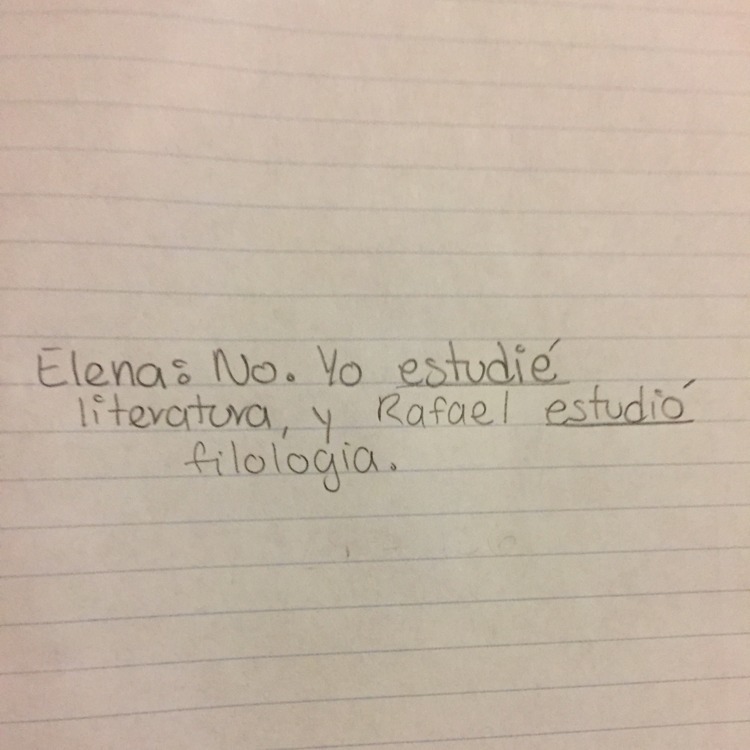 Elena: No. Yo estudié
literatura, y Rafael estudió
filologia.